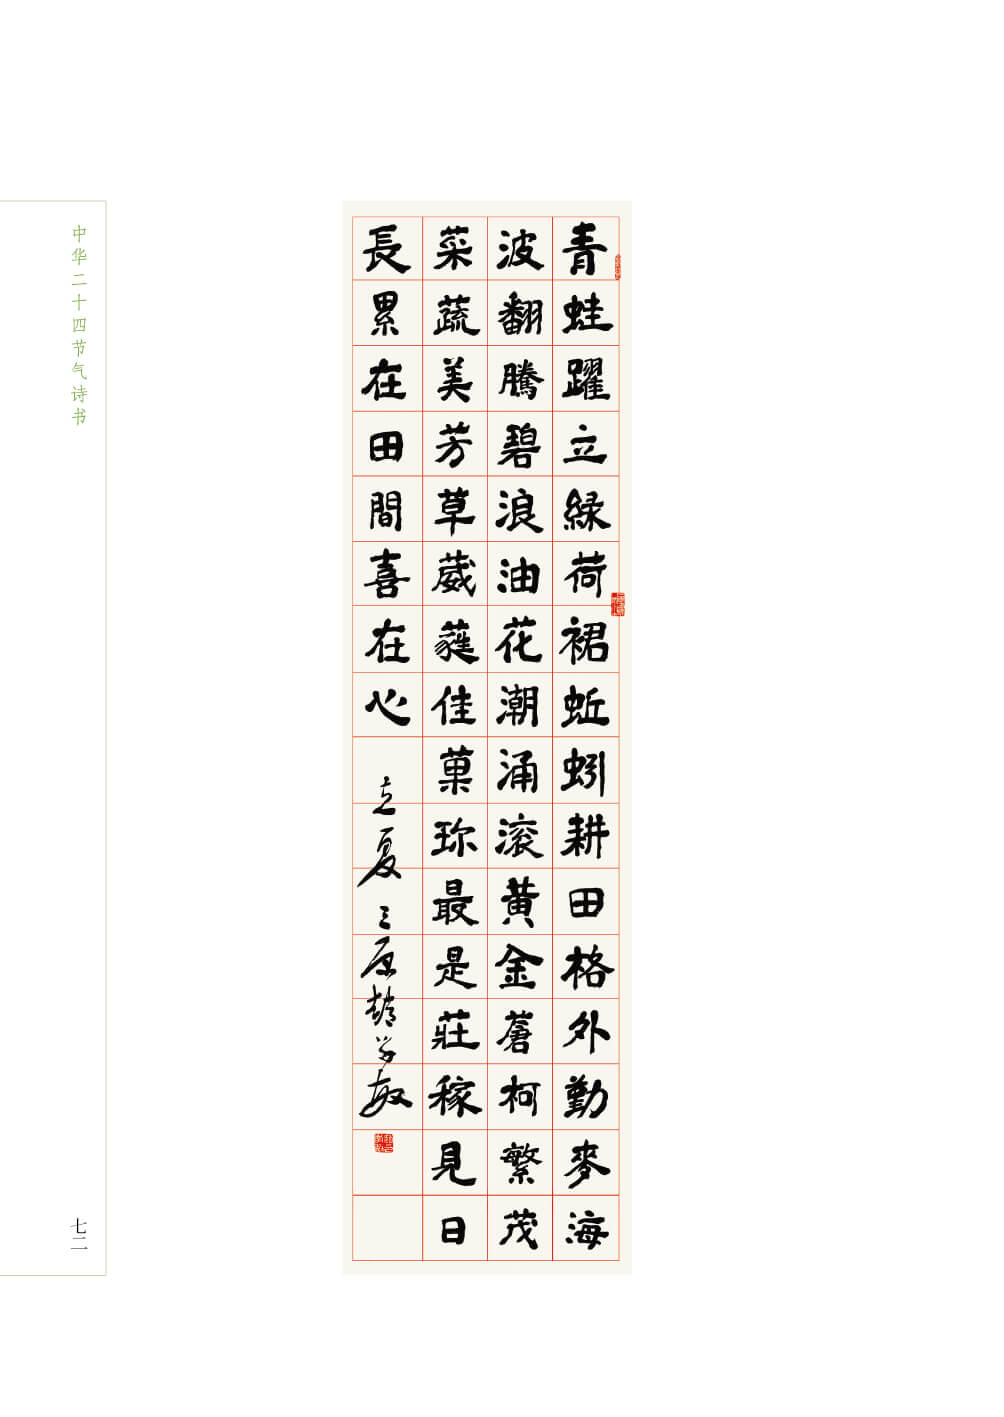 中华二十四节气诗书
青蛙躍立緑荷裙蚯蚓耕田格外勤麥海
波翻騰碧浪油花潮涌滚黄金蒼柯繁茂
菜蔬美芳草葳蕤佳菓珎最是莊稼見日
長累在田間喜在心
立夏三原趙学敏
七二